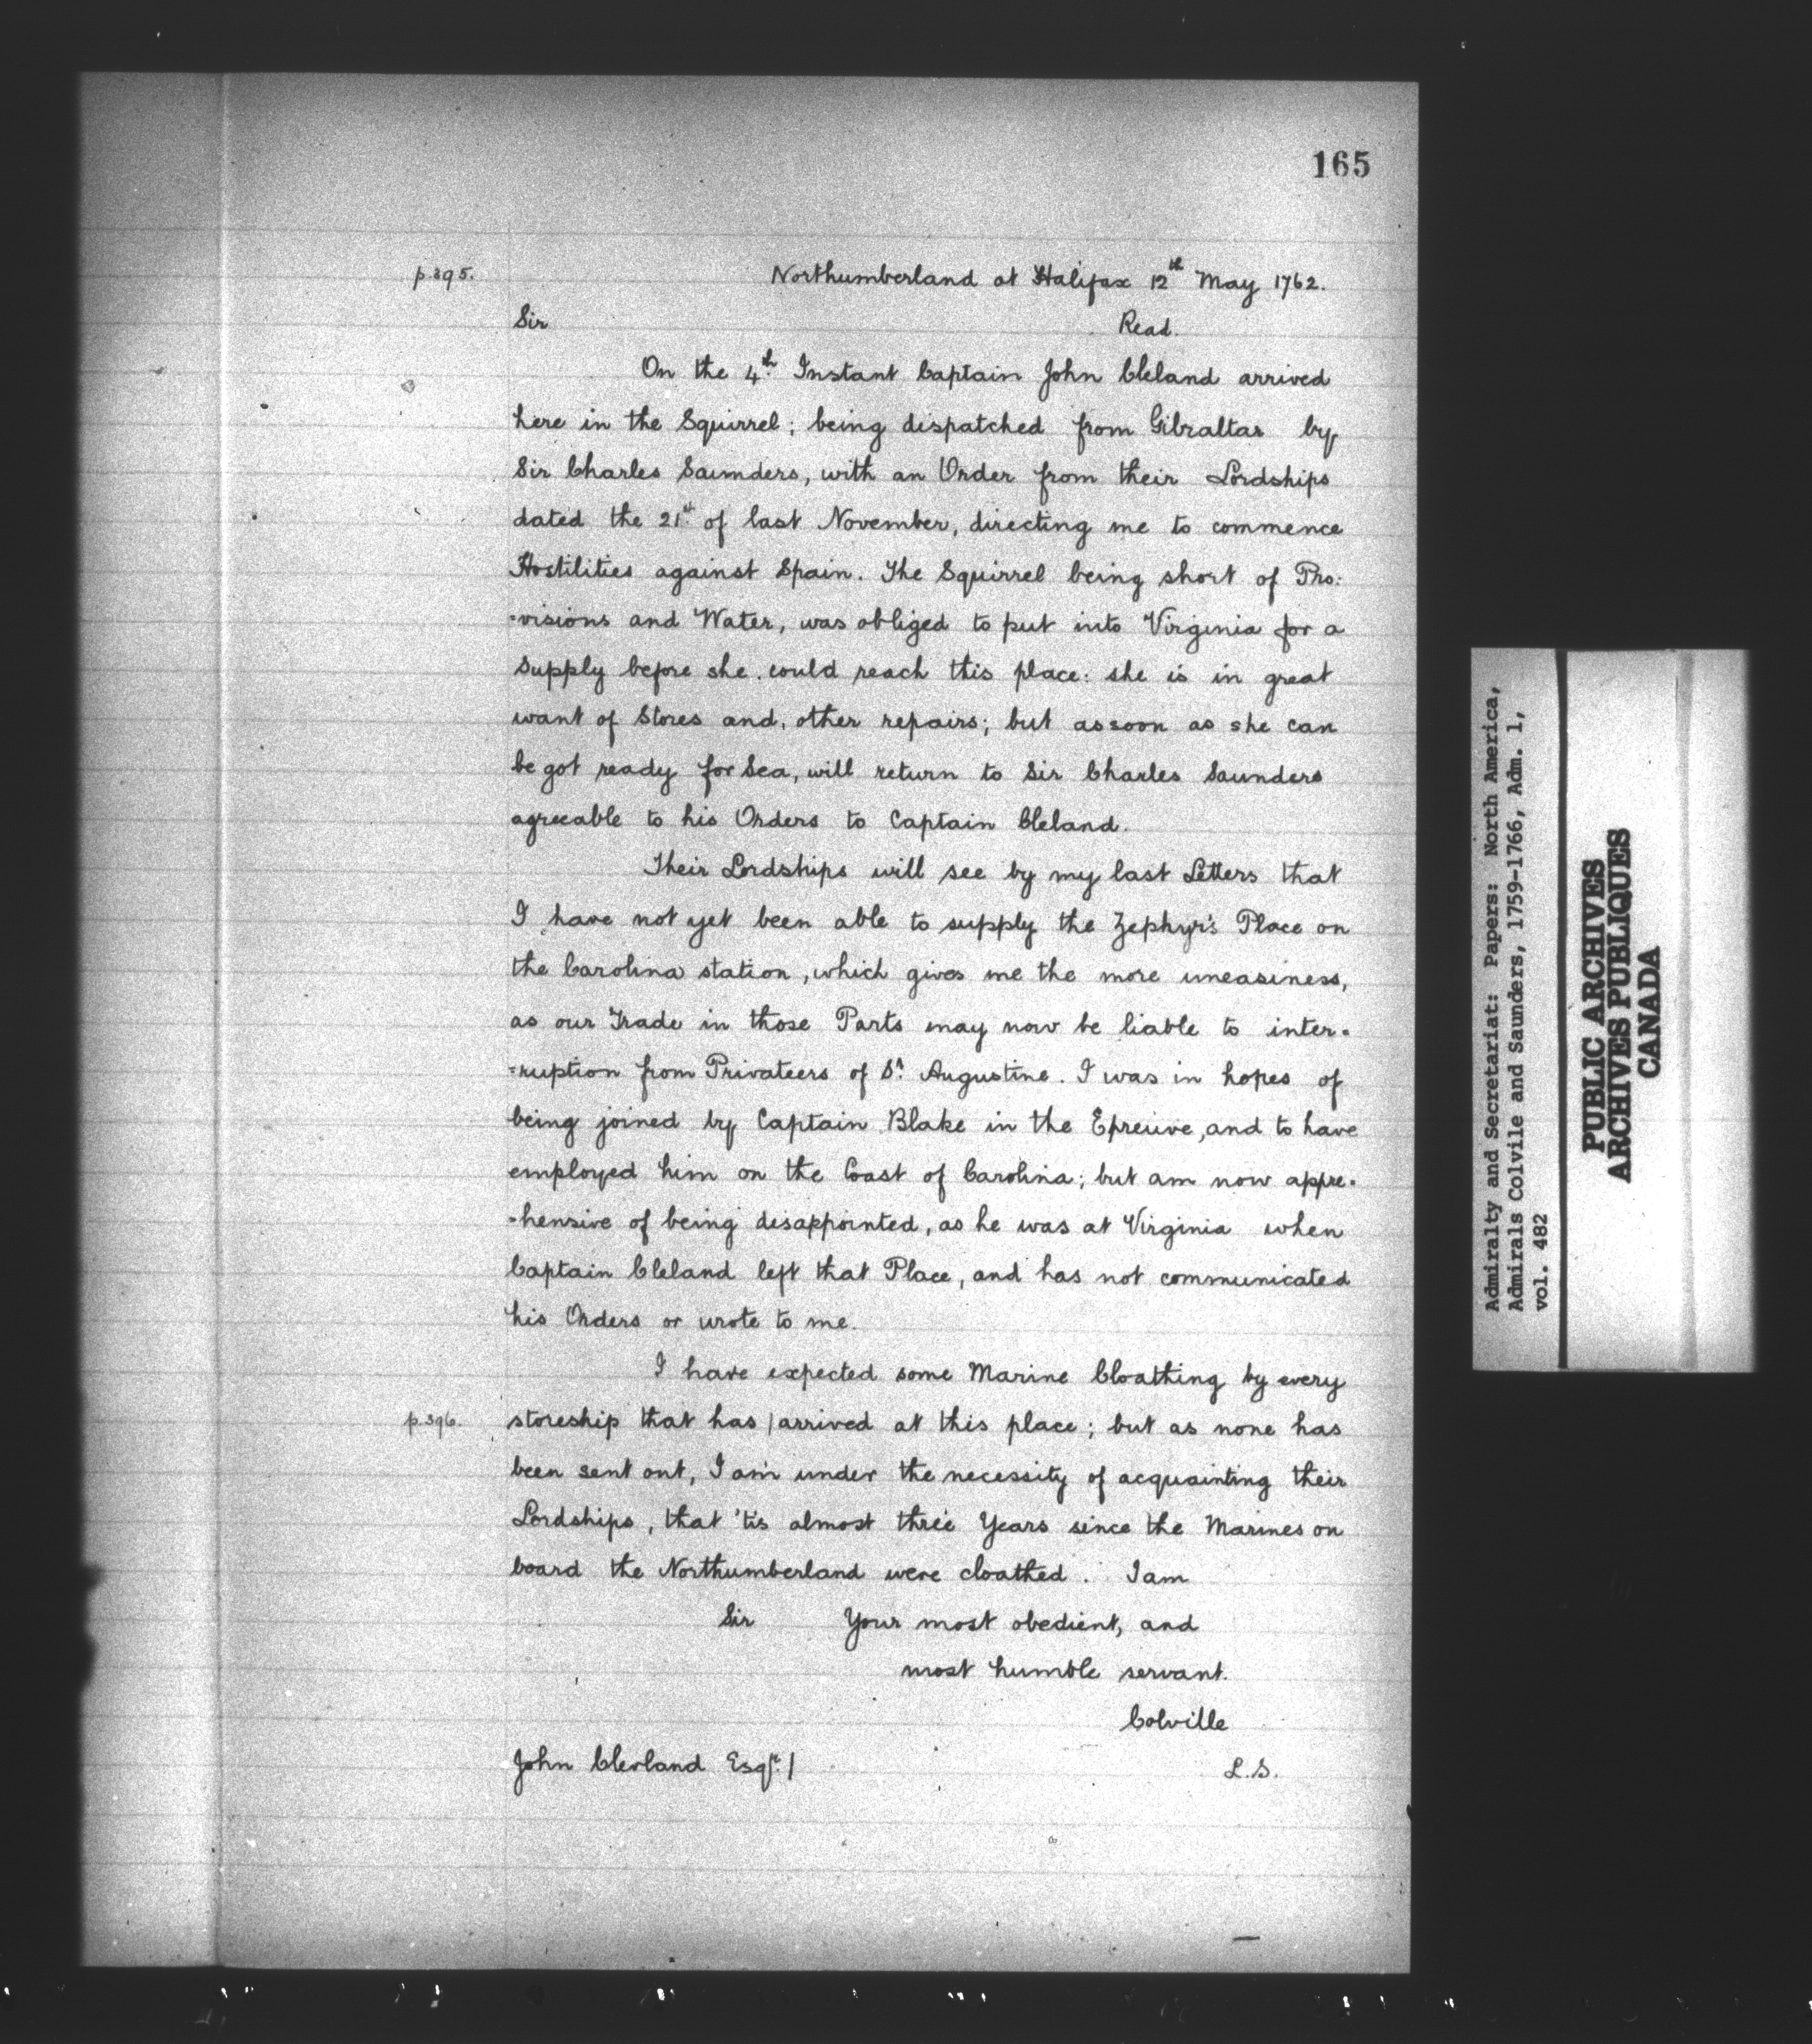 165
p. 395. Northumberland at Halifax 12th May 1762.
Sir Read.
On the 4th. Instant Captain John Cleland arrived
here in the Squirrel; being dispatched from Gibraltar by
Sir Charles Saunders, with an Order from their Lordships
dated the 21st. of last November, directing me to commence
Hostilities against Spain. The Squirrel being short of Pro:
=visions and Water, was obliged to put into Virginia for a
supply before she could reach this place: she is in great
want of Stores and other repairs; but as soon as she can
be got ready for Sea, will return to Sir Charles Saunders
agreeable to his Orders to Captain Cleland.
Their Lordships will see by my last Letters that
I have not yet been able to supply the Zephyr's Place on
the Carolina station, which gives me the more uneasiness,
as our Trade in those Parts may now be liable to inter=
=ruption from Privateers of St. Augustine. I was in hopes of
being joined by Captain Blake in the Epreuve, and to have
employed him on the Coast of Carolina; but am now appre=
=hensive of being disappointed, as he was at Virginia when
Captain Cleland left that Place, and has not communicated
his Orders or wrote to me.
I have expected some Marine Cloathing by every
p. 396. storeship that has / arrived at this place; but as none has
been sent out, I am under the necessity of acquainting their
Lordships, that 'tis almost three Years since the Marines on
board the Northumberland were cloathed. I am
Sir Your most obedient, and
most humble servant.
Colville
John Clevland Esqr. / L.S.
Admiralty and Secretariat: Papers: North America,
Admirals Colvile and Saunders, 1759-1766, Adm. 1,
vol. 482
PUBLIC ARCHIVES
ARCHIVES PUBLIQUES
CANADA